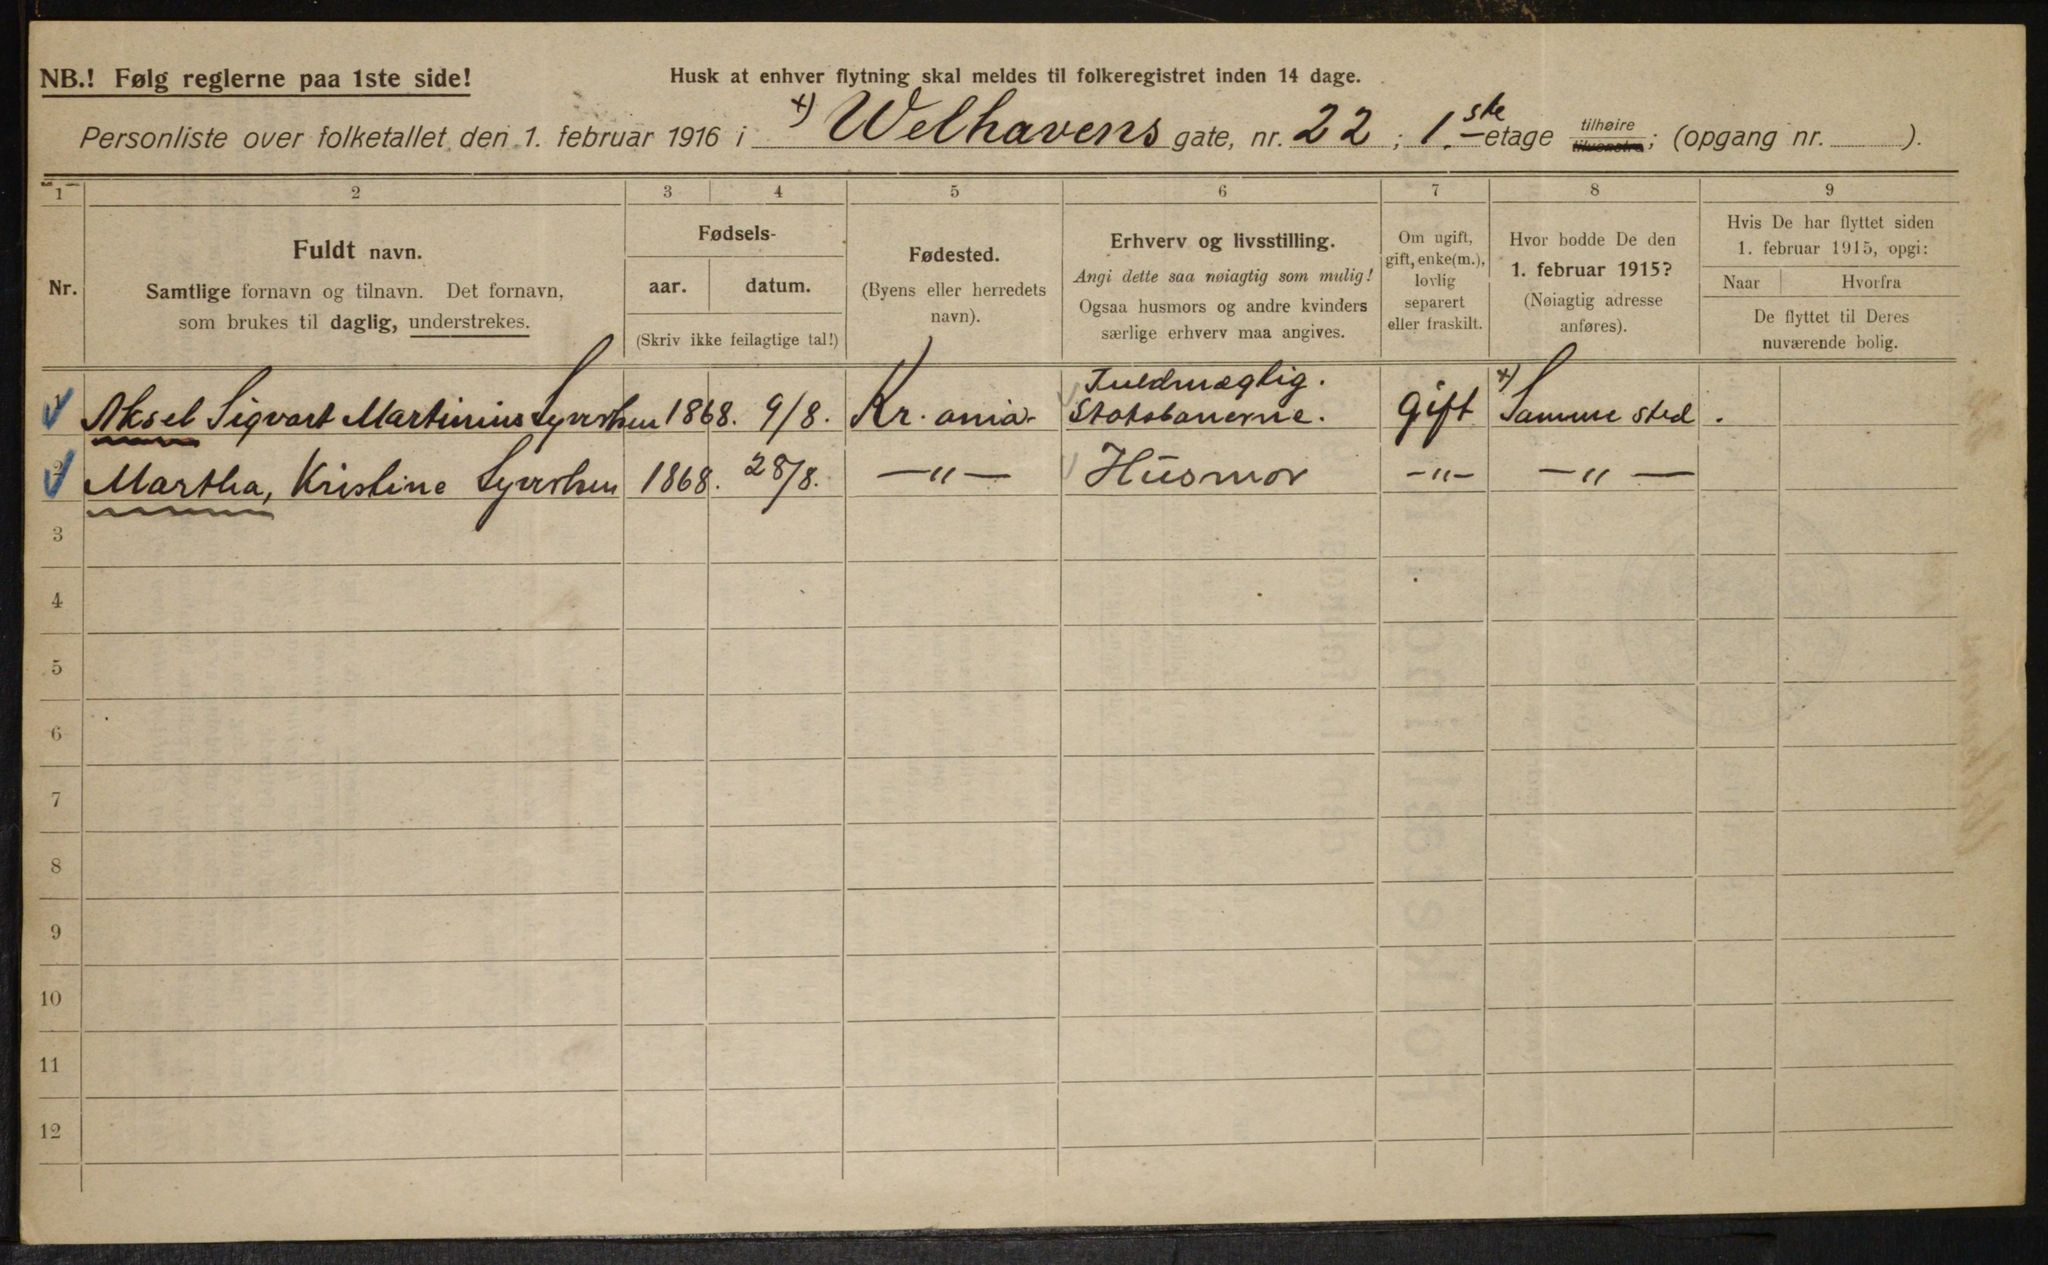 NB.! Følg reglerne paa 1ste side!
Husk at enhver flytning skal meldes til folkeregistret inden 14 dage.
Personliste over folketallet den 1. februar 1916 i x) Welhavens gate, nr. 22; 1.ste etage tilhøire tilvenstre; (opgang nr. ).
1 2 3 4 5 6 7 8 9
Nr.
Fuldt navn.
Samtlige fornavn og tilnavn. Det fornavn,
som brukes til daglig, understrekes.
Fødsels-
aar. datum.
(Skriv ikke feilagtige tal!)
Fødested.
(Byens eller herredets
navn).
Erhverv og livsstilling.
Angi dette saa nøiagtig som mulig!
Ogsaa husmors og andre kvinders
særlige erhverv maa angives.
Om ugift,
gift, enke(m.),
lovlig
separert
eller fraskilt.
Hvor bodde De den
1. februar 1915?
(Nøiagtig adresse
anføres).
Hvis De har flyttet siden
1. februar 1915, opgi:
Naar Hvorfra
De flyttet til Deres
nuværende bolig.
Fuldmægtig.
1 Aksel Sigvart Martinius Syvertsen 1868. 9/8. Kr.ania. Statsbanerne. Gift x) Samme sted.
2 Martha, Kristine Syvertsen 1868. 28/8. —"— Husmor —"— —"—
3
4
5
6
7
8
9
10
11
12